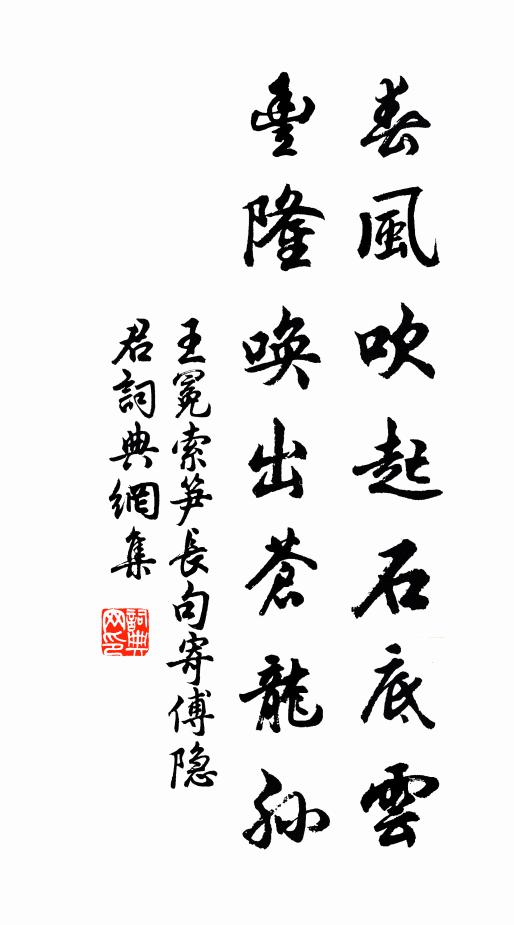 春風吹起石底雲
豊隆喚出蒼龍孫
王冕索笋長句寄傅隐
君詞典網集
詞典
网印